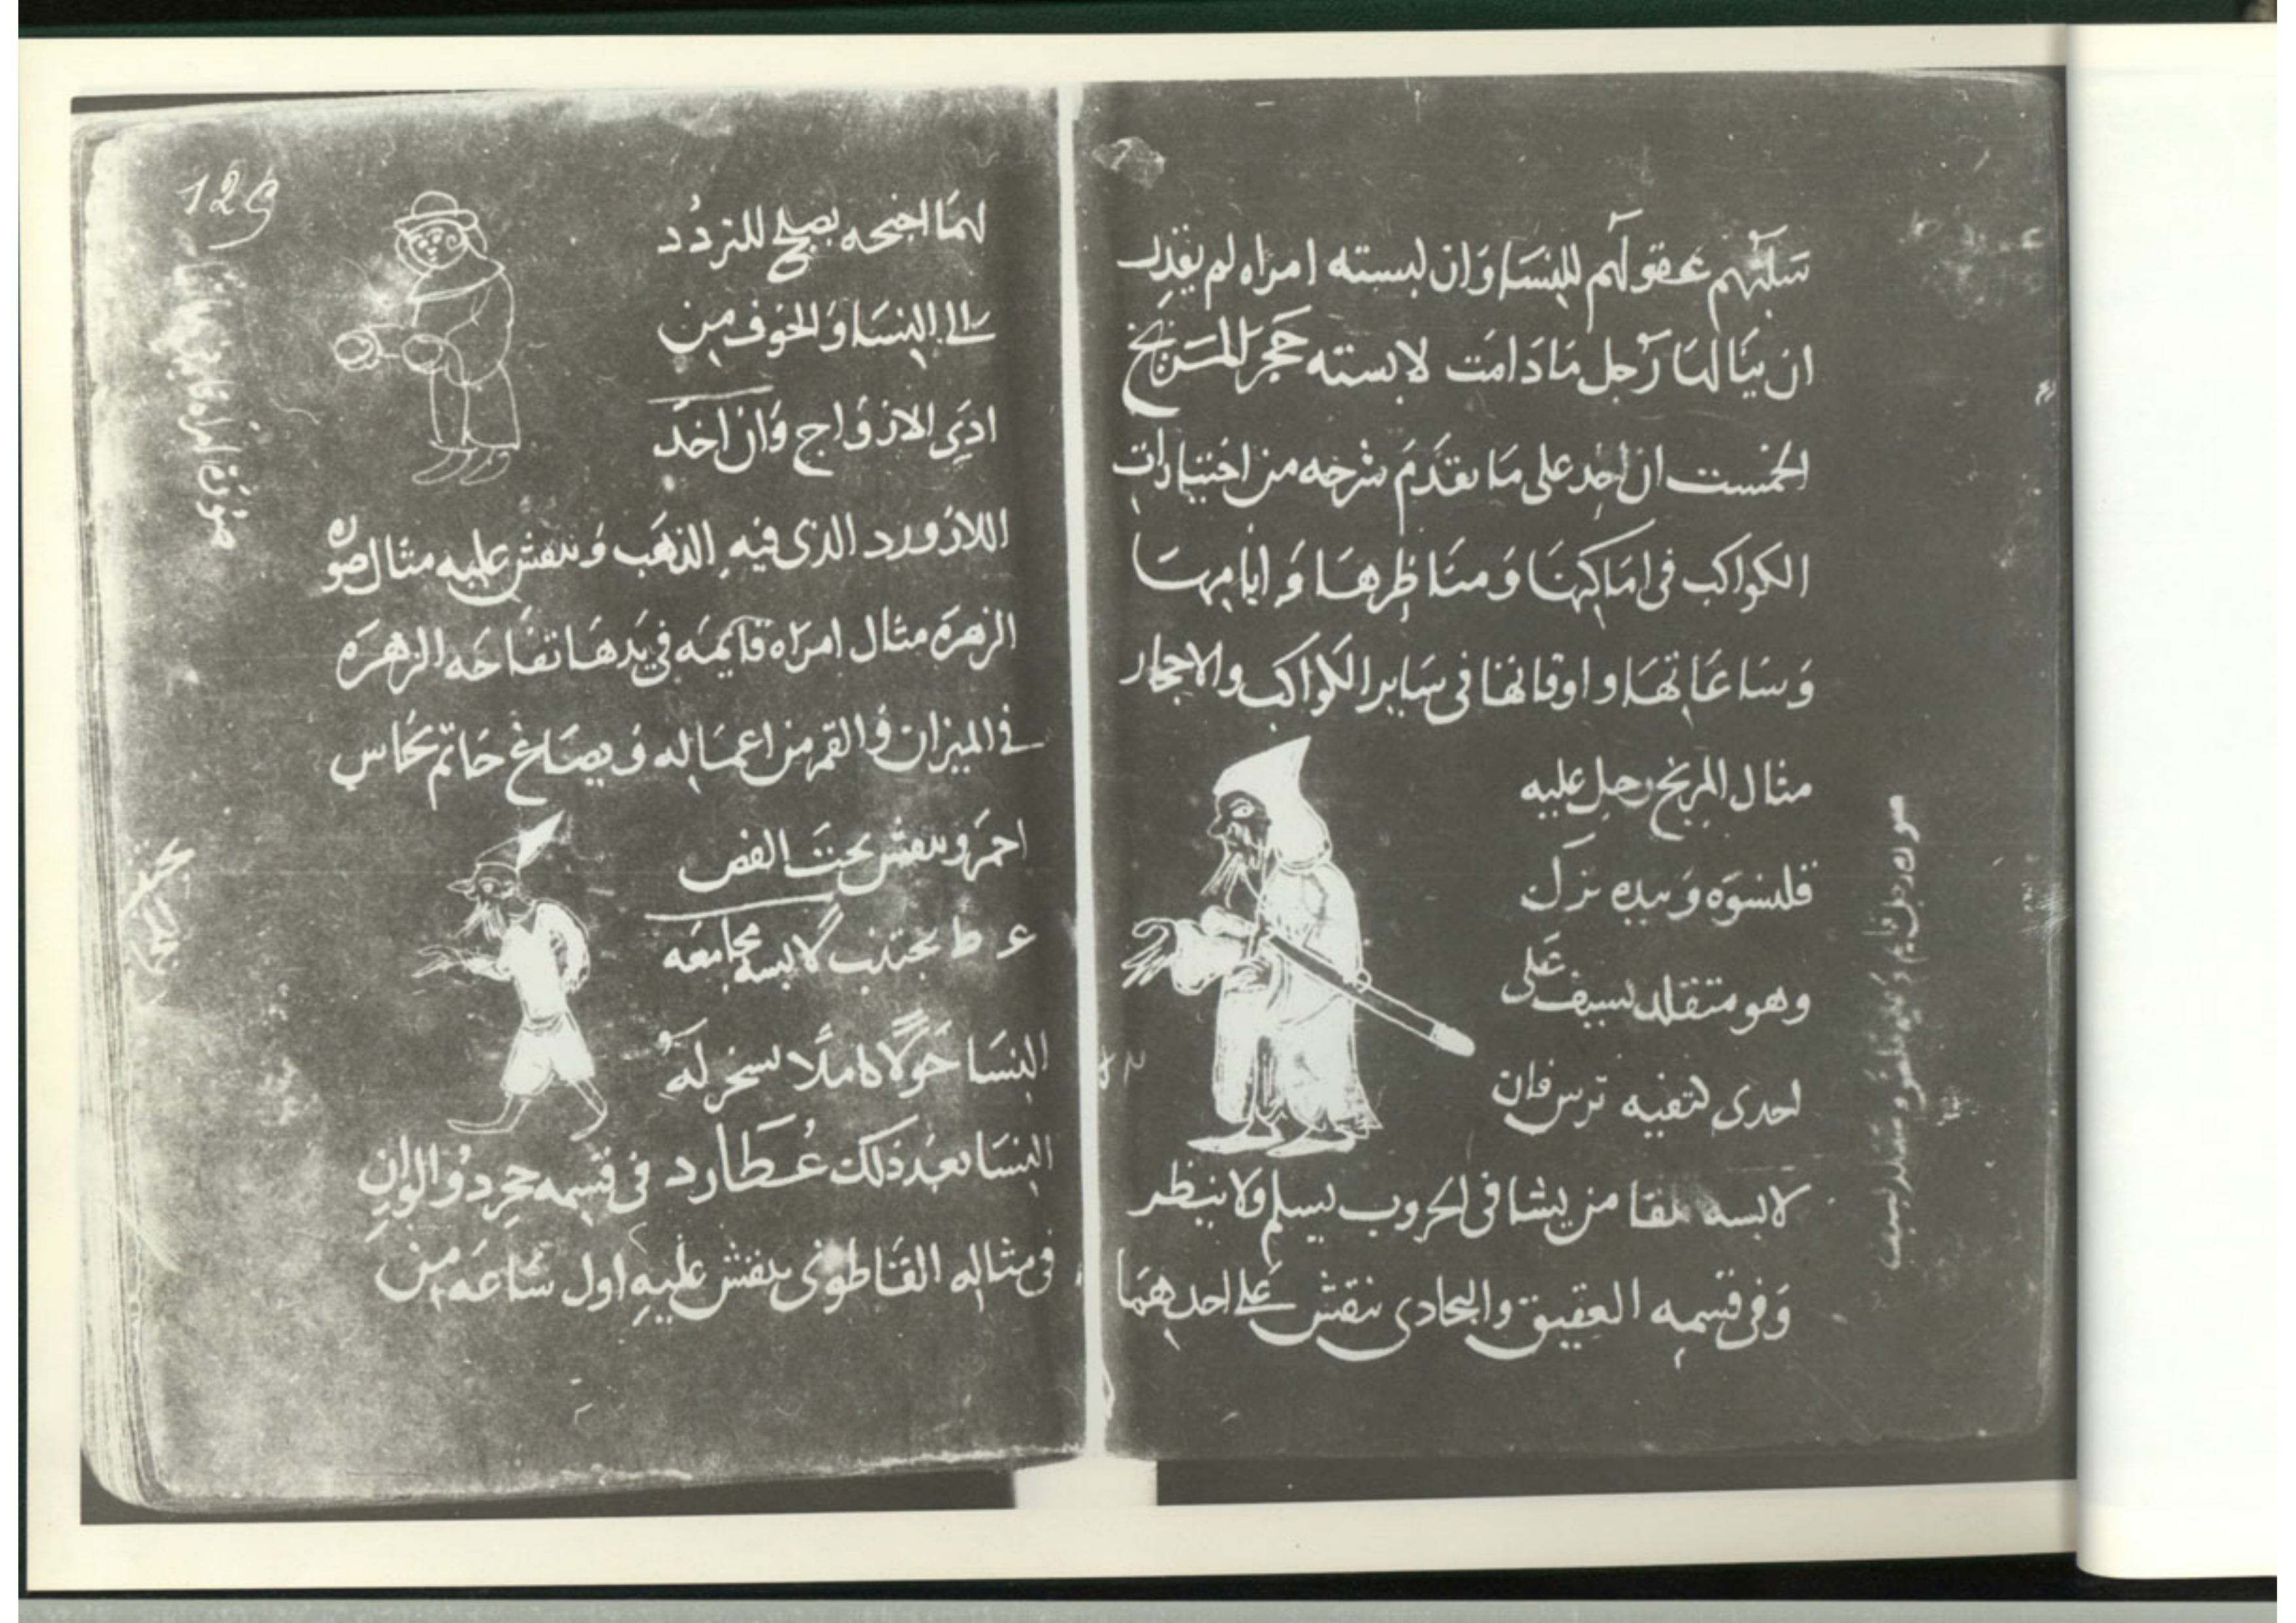 سلبهم عقولهم للنسا وان لبسته امراه لم يقدر
ان ينالها رجل مادامت لابسته حجر المريخ
الخمست ان اخذ على ما تقدم شرحه من اختيارات
الكواكب فى اماكنها ومناظرها وايامها
وساعاتها واوقاتها فى ساير الكواكب والاحجار
مثال المريخ رجل عليه
قلنسوه وبيده
وهو متقلد بسيف على
احدى كتفيه ترس فان
لابسه يلقا من يشا فى الحروب يسلم ولا
وفى قسمه العقيق والبجادى ينقش على احدهما
صوره رجل قايم
129
لهما اجنحه يصلح للتردد
الى النسا والخوف من
اذى الازواج وان اخذ
اللازورد الذى فيه الذهب وينقش عليه مثال صوره
الزهره مثال امراه قايمه فى يدها تفاحه الزهره
فى الميزان والقمر من اعماله ويصاغ خاتم نحاس
احمر وينقش تحت الفص
ع ط يجتنب لابسه مجامعه
النسا حولا كاملا يسخر له
النسا بعد ذلك عطارد فى قسمه حجر ذو الوان
فى مثاله القناطوى ينقش عليه اول ساعه من